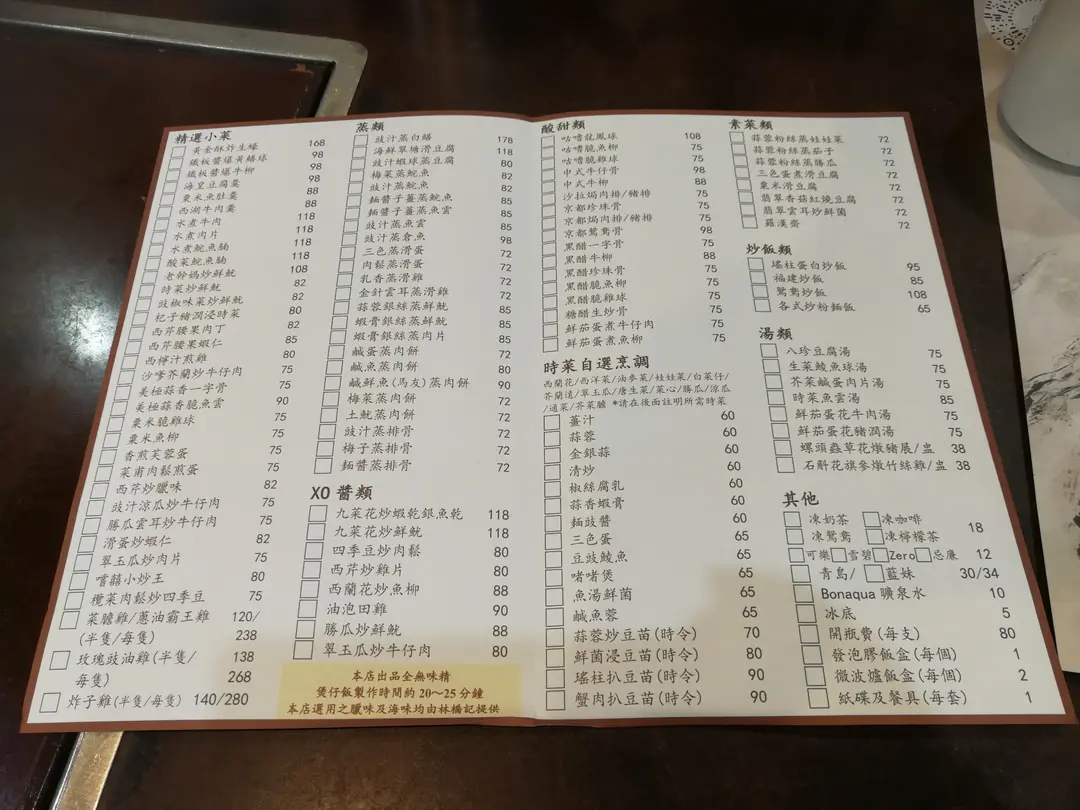 精選小菜
黃金酥炒生蠔 168
鐵板醬爆黃鱔球 98
鐵板醬爆牛柳 98
海皇豆腐羹 98
粟米魚肚羹 88
西湖牛肉羹 88
水煮牛肉 118
水煮肉片 118
水煮鯇魚腩 118
酸菜鯇魚腩 118
老幹媽炒鮮魷 108
時菜炒鮮魷 82
豉椒味菜炒鮮魷 82
杞子豬潤浸時菜 80
西芹腰果肉丁 82
西芹腰果蝦仁 85
西檸汁煎雞 80
沙爹芥蘭炒牛仔肉 75
美極蒜香一字骨 75
美極蒜香脆魚雲 90
粟米脆雞球 75
粟米魚柳 75
香煎芙蓉蛋 75
菜甫肉鬆煎蛋 75
西芹炒臘味 82
豉汁涼瓜炒牛仔肉 75
勝瓜雲耳炒牛仔肉 75
滑蛋炒蝦仁 82
翠玉瓜炒肉片 75
嚐囍小炒王 80
欖菜肉鬆炒四季豆 75
菜膽雞/蔥油霸王雞 120/
(半隻/每隻) 238
玫瑰豉油雞(半隻/ 138
每隻) 268
炸子雞(半隻/每隻) 140/280
蒸類
豉汁蒸白鱔 178
海鮮單塘滑豆腐 118
豉汁蝦球蒸豆腐 80
梅菜蒸鯇魚 82
豉汁蒸鯇魚 82
麵醬子薑蒸鯇魚 85
麵醬子薑蒸魚雲 85
豉汁蒸魚雲 85
豉汁蒸倉魚 98
三色蒸滑蛋 72
肉鬆蒸滑蛋 72
乳香蒸滑雞 72
金針雲耳蒸滑雞 72
蒜蓉銀絲蒸鮮魷 85
蝦膏銀絲蒸鮮魷 85
蝦膏銀絲蒸肉片 85
鹹蛋蒸肉餅 72
鹹魚蒸肉餅 80
鹹鮮魚(馬友)蒸肉餅 90
梅菜蒸肉餅 72
土魷蒸肉餅 72
豉汁蒸排骨 72
梅子蒸排骨 72
麵醬蒸排骨 72
XO 醬類
九菜花炒蝦乾銀魚乾 118
九菜花炒鮮魷 118
四季豆炒肉鬆 80
西芹炒雞片 80
西蘭花炒魚柳 88
油泡田雞 90
勝瓜炒鮮魷 88
翠玉瓜炒牛仔肉 80
本店出品全無味精
煲仔飯製作時間約 20～25 分鐘
本店選用之臘味及海味均由林橋記提供
酸甜類
咕嚕龍鳳球 108
咕嚕脆魚柳 75
咕嚕脆雞球 75
中式牛仔骨 98
中式牛柳 88
沙拉焗肉排/豬排 75
京都珍珠骨 75
京都焗肉排/豬排 75
京都鴛鴦骨 98
黑醋一字骨 75
黑醋牛柳 88
黑醋珍珠骨 75
黑醋脆魚柳 75
黑醋脆雞球 75
糖醋生炒骨 75
鮮茄蛋煮牛仔肉 75
鮮茄蛋煮魚柳 75
時菜自選烹調
西蘭花/西洋菜/油麥菜/娃娃菜/白菜仔/
芥蘭遠/翠玉瓜/唐生菜/菜心/勝瓜/涼瓜
/通菜/芥菜膽 *請在後面註明所需時菜
薑汁 60
蒜蓉 60
金銀蒜 60
清炒 60
椒絲腐乳 60
蒜香蝦膏 60
麵豉醬 60
三色蛋 65
豆豉鯪魚 65
啫啫煲 65
魚湯鮮菌 65
鹹魚蓉 65
蒜蓉炒豆苗(時令) 70
鮮菌浸豆苗(時令) 80
瑤柱扒豆苗(時令) 90
蟹肉扒豆苗(時令) 90
素菜類
蒜蓉粉絲蒸娃娃菜 72
蒜蓉粉絲蒸茄子 72
蒜蓉粉絲蒸勝瓜 72
三色蛋煮滑豆腐 72
粟米滑豆腐 72
翡翠香菇紅燒豆腐 72
翡翠雲耳炒鮮菌 72
羅漢齋 72
炒飯類
瑤柱蛋白炒飯 95
福建炒飯 85
鴛鴦炒飯 108
各式炒粉麵飯 65
湯類
八珍豆腐湯 75
生菜鯪魚球湯 75
芥菜鹹蛋肉片湯 75
時菜魚雲湯 85
鮮茄蛋花牛肉湯 75
鮮茄蛋花豬潤湯 75
螺頭蟲草花燉豬展/盅 38
石斛花旗參燉竹絲雞/盅 38
其他
凍奶茶 凍咖啡 18
凍鴛鴦 凍檸檬茶
可樂 雪碧 Zero 忌廉 12
青島/ 藍妹 30/34
Bonaqua 曠泉水 10
冰底 5
開瓶費(每支) 80
發泡膠飯盒(每個) 1
微波爐飯盒(每個) 2
紙碟及餐具(每套) 1